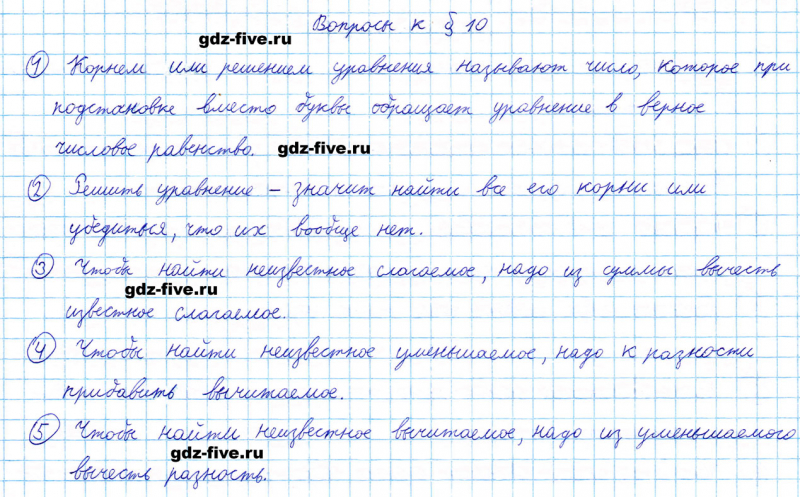 Вопросы к § 10
gdz-five.ru
1 Корнем или решением уравнения называют число, которое при
подстановке вместо буквы обращает уравнение в верное
числовое равенство. gdz-five.ru
2 Решить уравнение – значит найти все его корни или
убедиться, что их вообще нет.
3 Чтобы найти неизвестное слагаемое, надо из суммы вычесть
gdz-five.ru
известное слагаемое.
4 Чтобы найти неизвестное уменьшаемое, надо к разности
прибавить вычитаемое.
5 Чтобы найти неизвестное вычитаемое, надо из уменьшаемого
gdz-five.ru
вычесть разность.